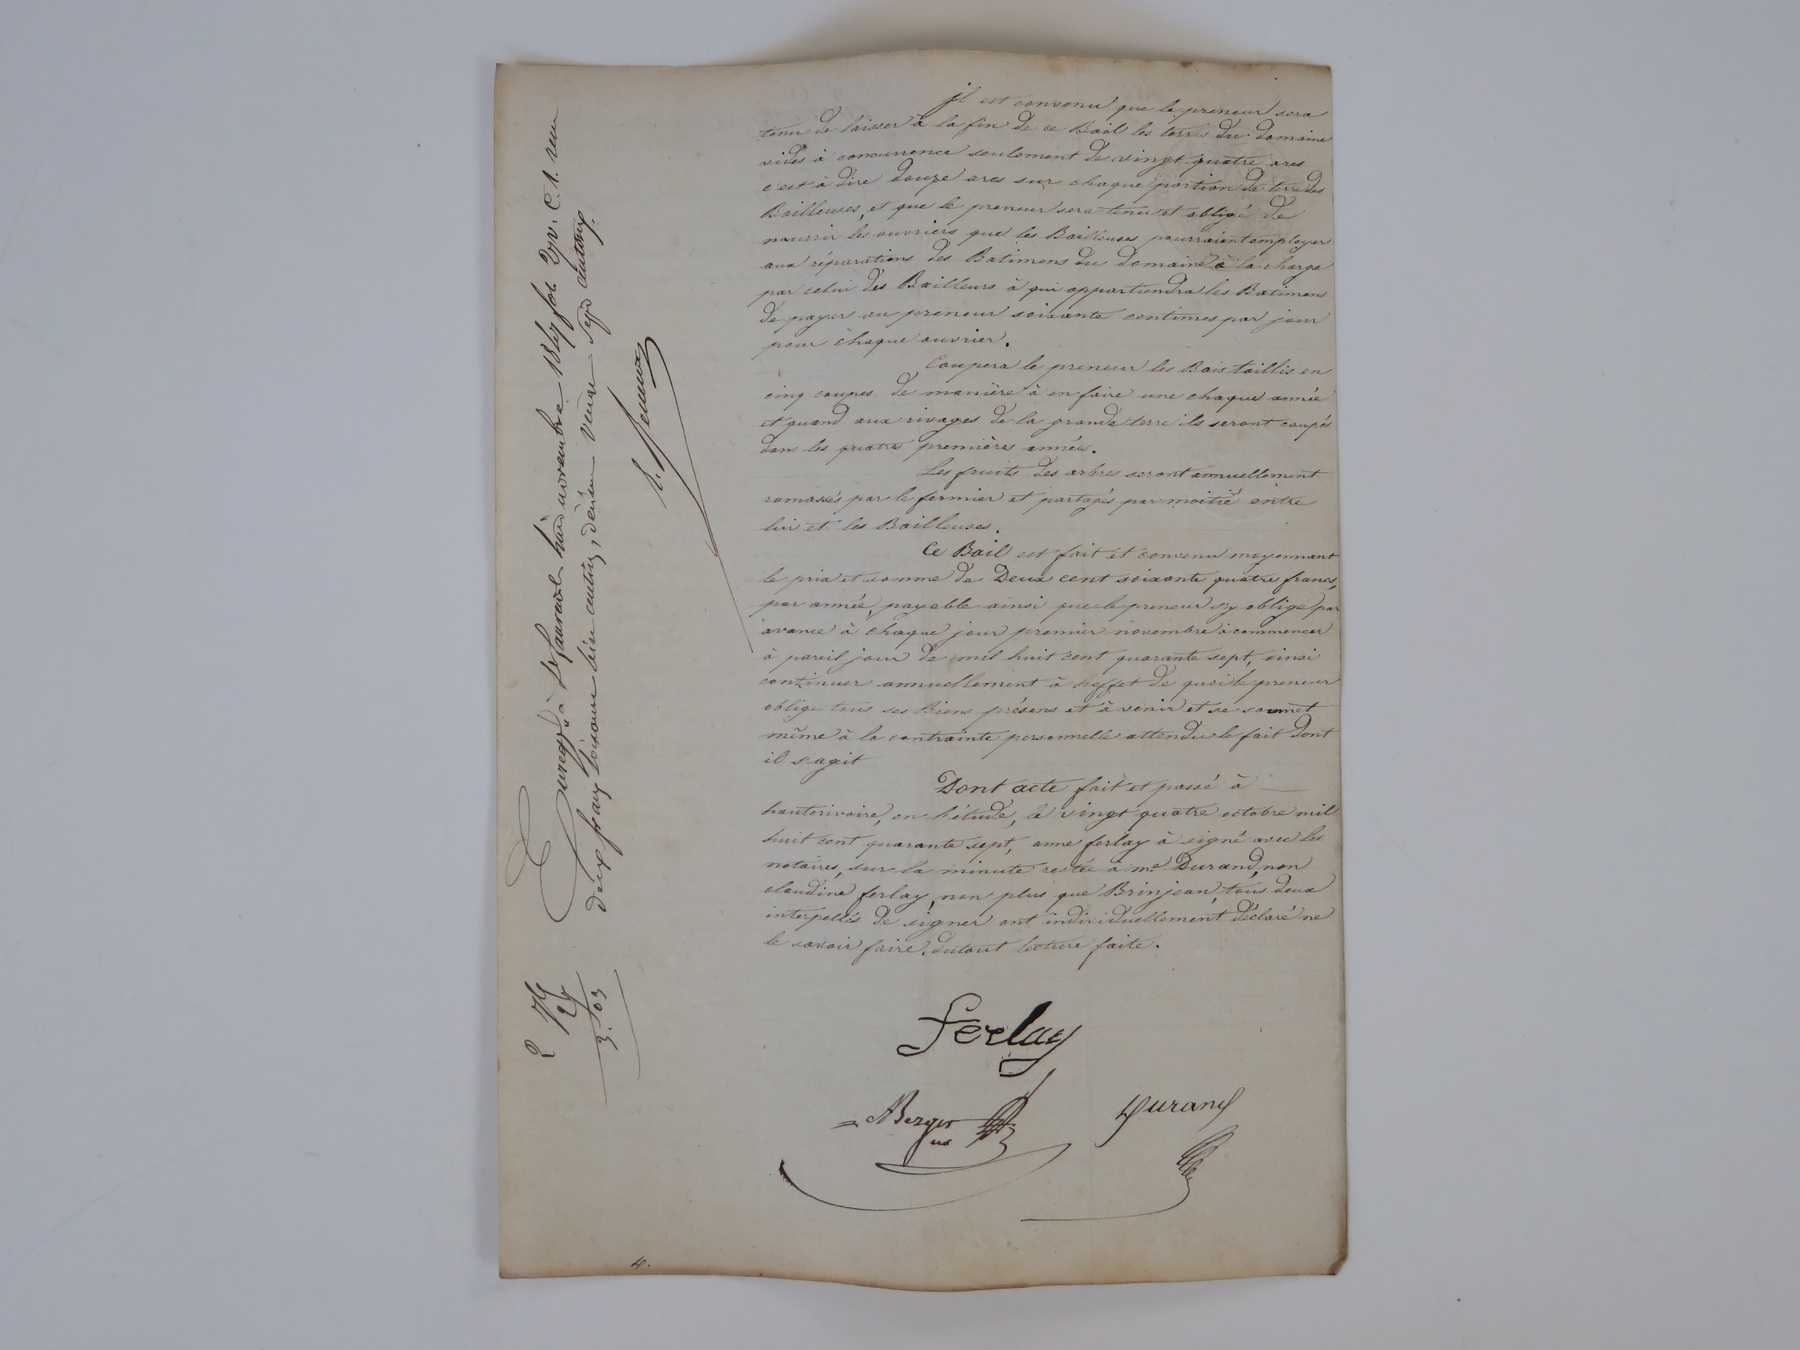 Il est convenu que le preneur sera
tenu de laisser à la fin de ce Bail les terres du domaine
vides à concurrence seulement de vingt quatre ares
c'est à dire douze ares sur chaque portion de terre des
Bailleuses, et que le preneur sera tenu et obligé de
nourrir les ouvriers que les Bailleuses pourraient employer
aux réparations des Batimens du domaine à la charge
par celui des Bailleurs à qui appartiendra les Batimens
de payer au preneur soixante centimes par jour
pour chaque ouvrier.
Coupera le preneur les Bois taillis en
cinq coupes de manière à en faire une chaque année
et quand aux rivages de la grande terre ils seront coupés
dans les quatre premières années.
Les fruits des arbres seront annuellement
ramassés par le fermier et partagés par moitié entre
lui et les Bailleuses.
Ce Bail est fait et convenu moyennant
le prix et somme de Deux cent soixante quatre francs,
par année, payable ainsi que le preneur s'y oblige par
avance à chaque jour premier novembre à commencer
à pareil jour de mil huit cent quarante sept, ainsi
continuer annuellement à l'effet de quoi le preneur
oblige tous ses Biens présens et à venir et se soumet
même à la contrainte personnelle attendu le fait dont
il s'agit
Dont acte fait et passé à
hauterivoire, en l'étude, le vingt quatre octobre mil
huit cent quarante sept, anne ferlay à signé avec les
notaires, sur la minute restée à me Durand, non
claudine ferlay, non plus que Brinjean, tous deux
interpellés de signer ont individuellement déclaré ne
le savoir faire. dutout lecture faite.
Ferlay
Berger
Durand
Enregé à St Laurent le novembre 1847 fol 2 v. C. 1. reçu
deux francs centimes, dixième
2
3.03
4.